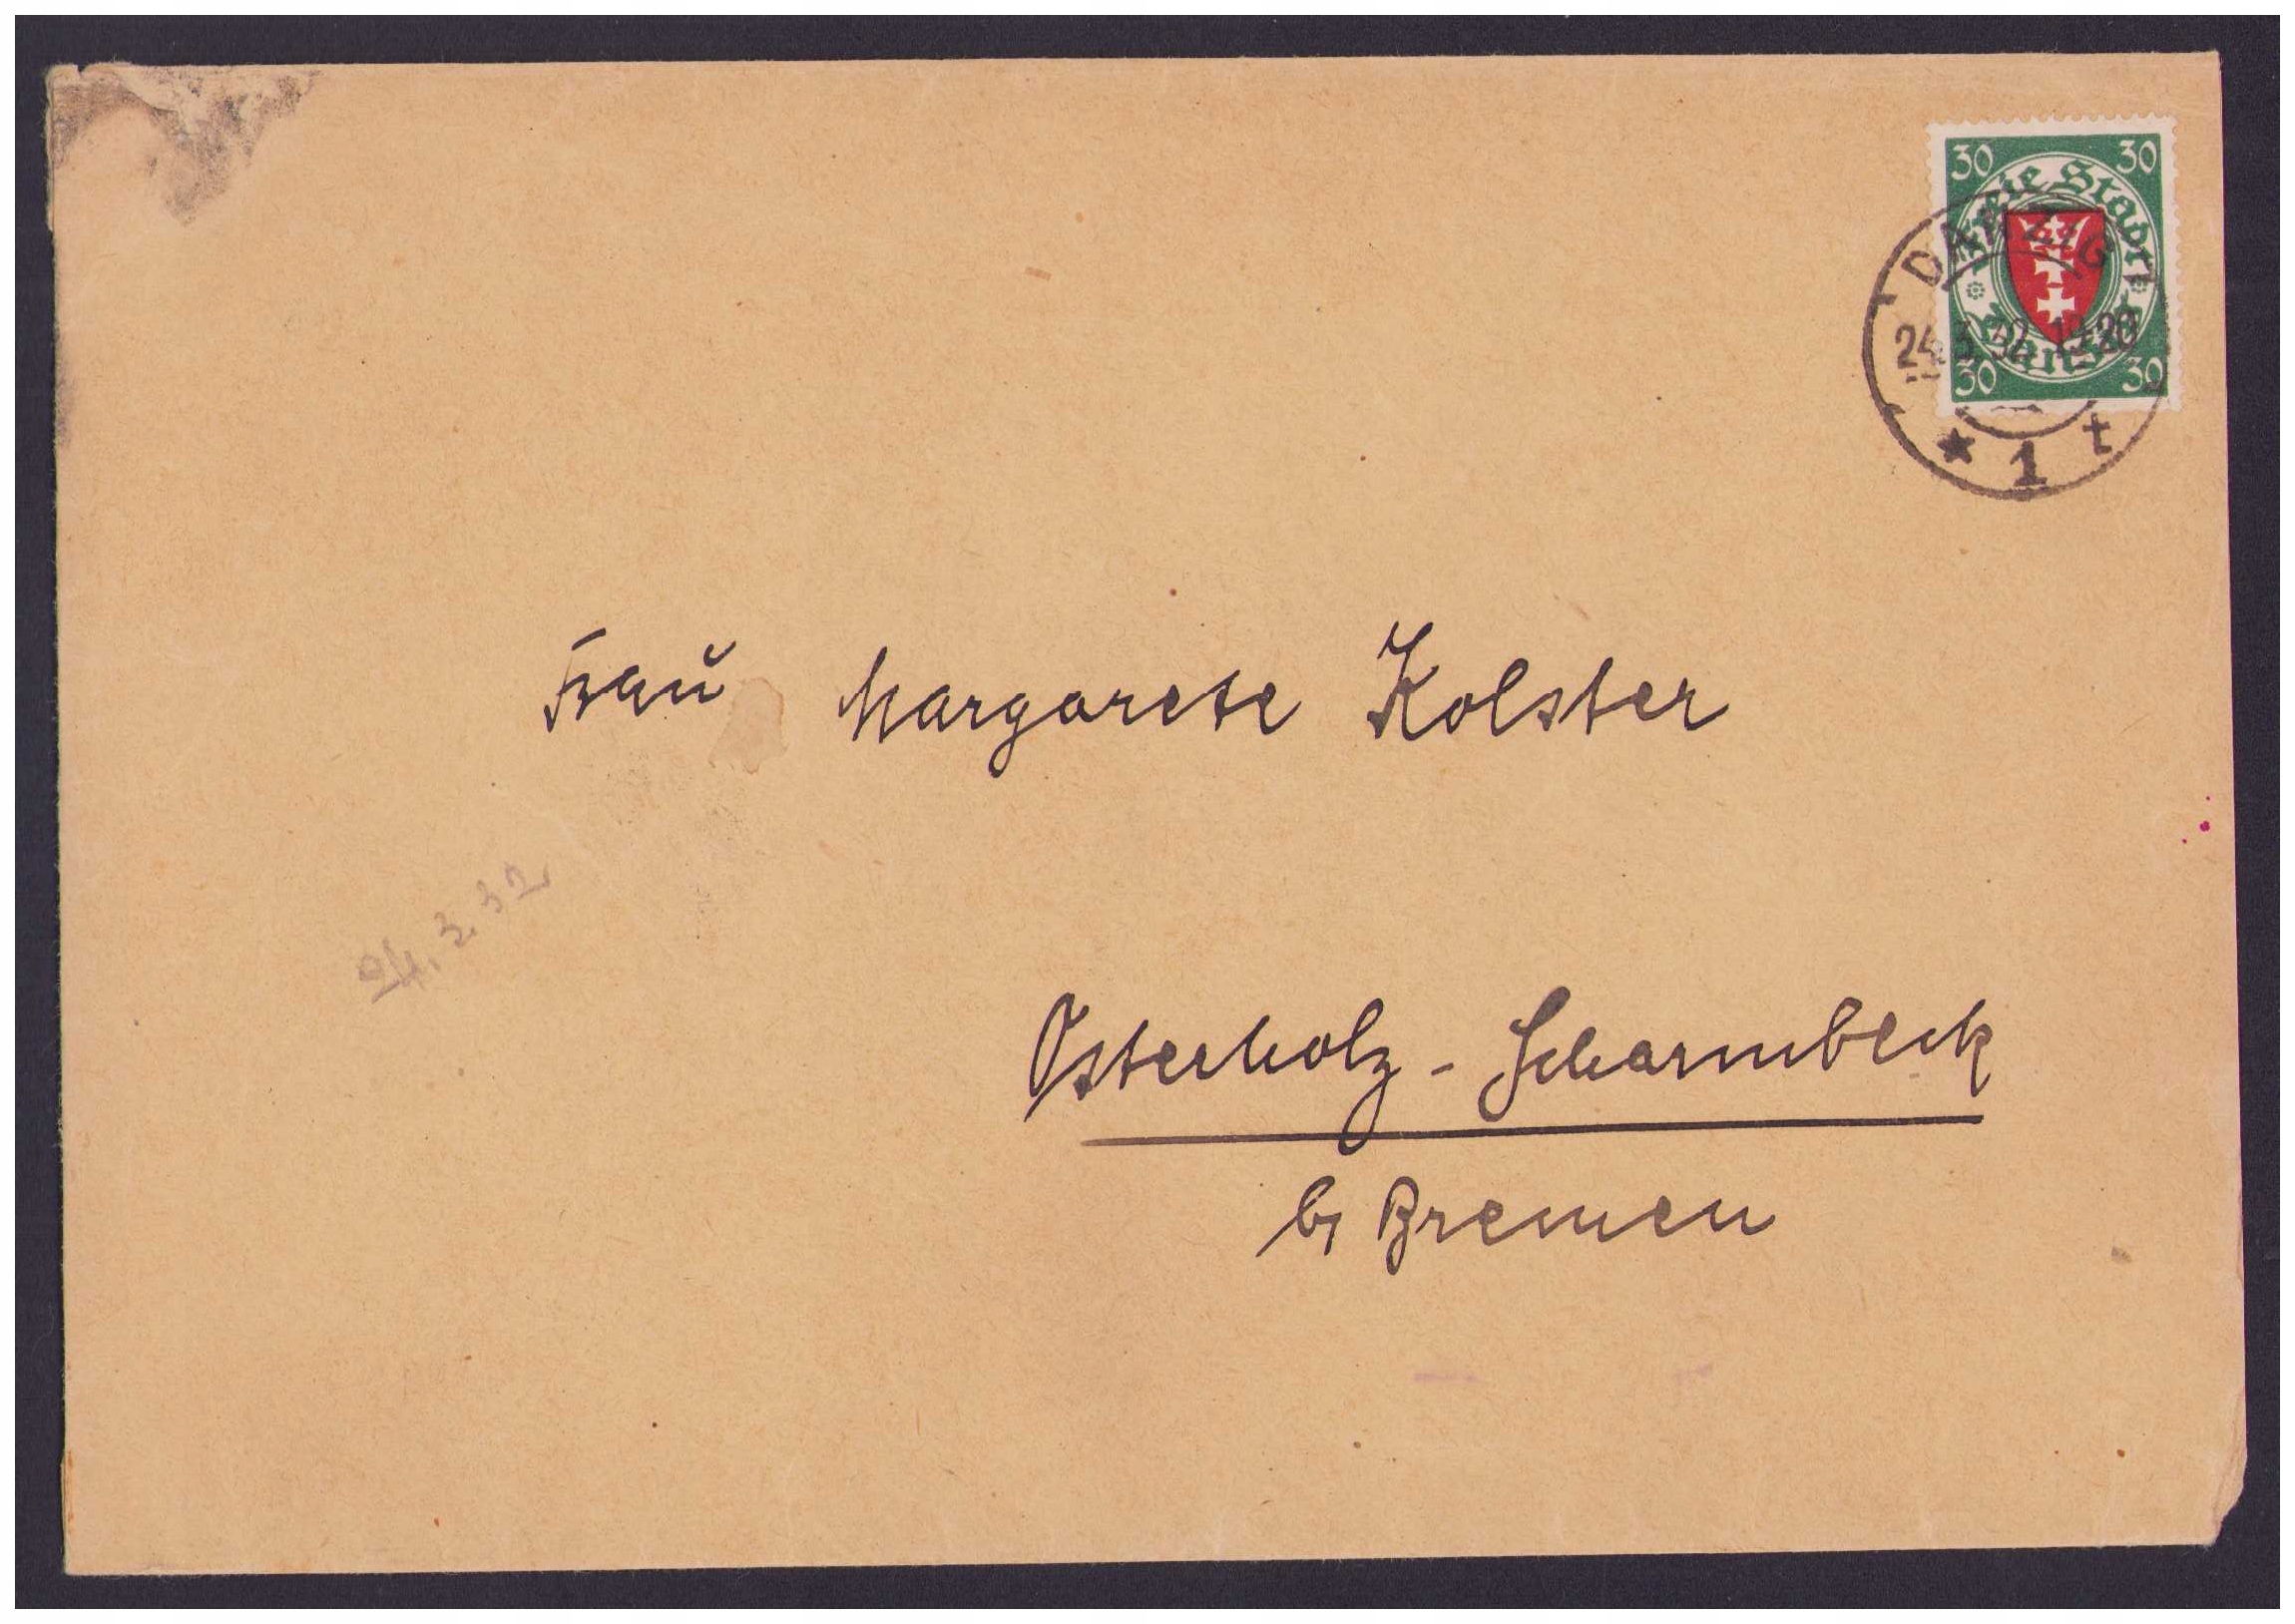 30 30
Freie Stadt
Danzig
30 30
DANZIG
24.3.32 19-20
* 1 t
Fraŭ Margarete Kolster
24.3.32
Osterholz - Scharmbeck
b/ Bremen